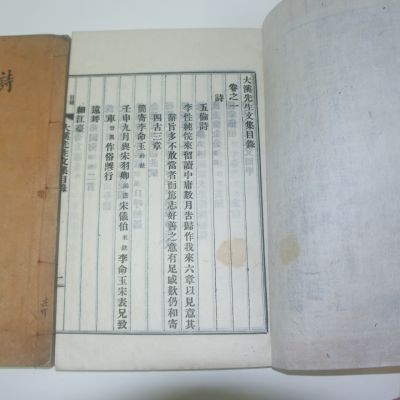 大溪先生文集目錄
卷之一
詩
五倫詩
李性純悅來留讀中庸數月告歸作我來六章以見意其
辭旨多不敢當者而篤志好善之意有足感歎仍和寄
四古三章
簡寄李命玉
壬申九月與宋羽卿宋儀伯李命玉宋表兄致
車作俗離行
遠
細江臺
大溪先生文集目錄
二
詩